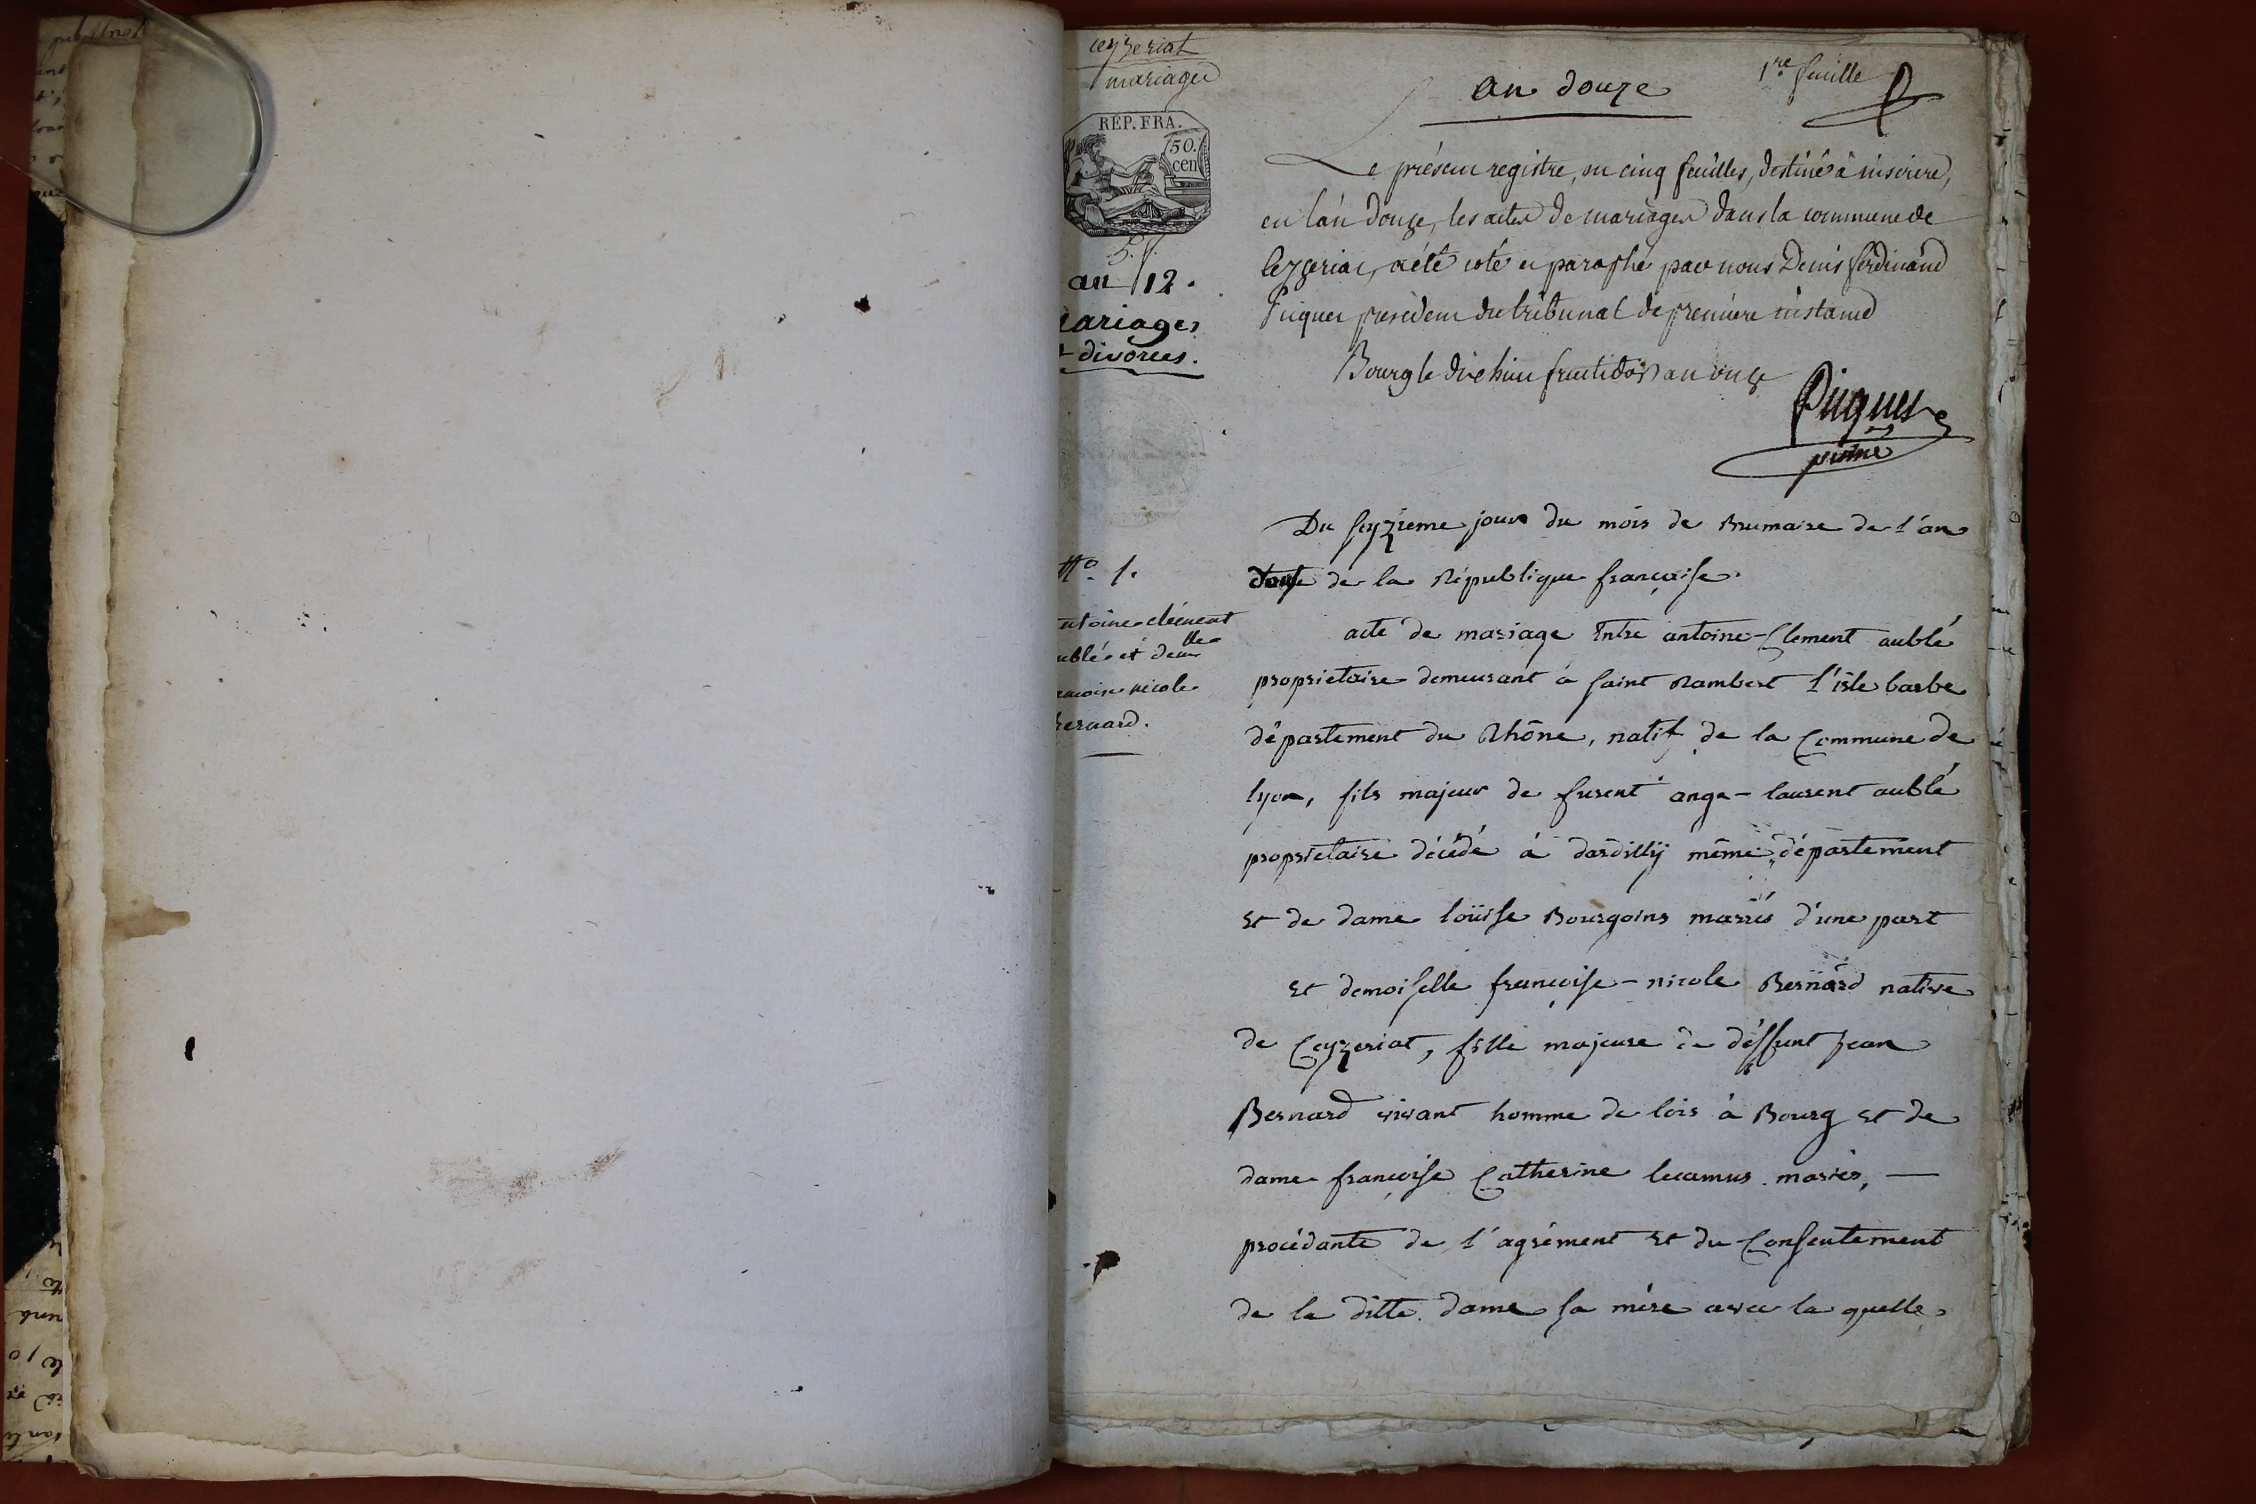 Ceyzeriat
mariages
REP. FRA.
50.
cen
an 12.
ariages
t divorces.
an douze
1re feuille
Le présent registre, en cinq feuilles, destiné à inscrire,
en l'an douze, les actes de mariages dans la commune de
Ceyzeriat, a été coté et paraphé par nous Denis ferdinand
Picquet président du tribunal de première instance
Bourg le dix huit fructidor an onze
Picquet
Du seyzieme jour du mois de Brumaire de l'an
douze de la République françoise.
No. 1.
ntoine clément
ublé et delle
ancoise nicole
Bernard.
acte de mariage Entre antoine-Clement aublé
proprietaire demeurant à saint Rambert l'isle barbe
département du Rhône, natif de la Commune de
lyon, fils majeur de ange-laurent aublé
proprietaire décédé à dardilly même département
Et de dame loüise Bourgoins mariés d'une part
Et demoiselle françoise-nicole Bernard native
de Ceyzeriat, fille majeure de déffunt jean
Bernard vivant homme de lois à Bourg Et de
dame françoise Catherine lecamus mariés, —
procédante de l'agrément Et du Consentement
de la ditte dame sa mére avec la quelle